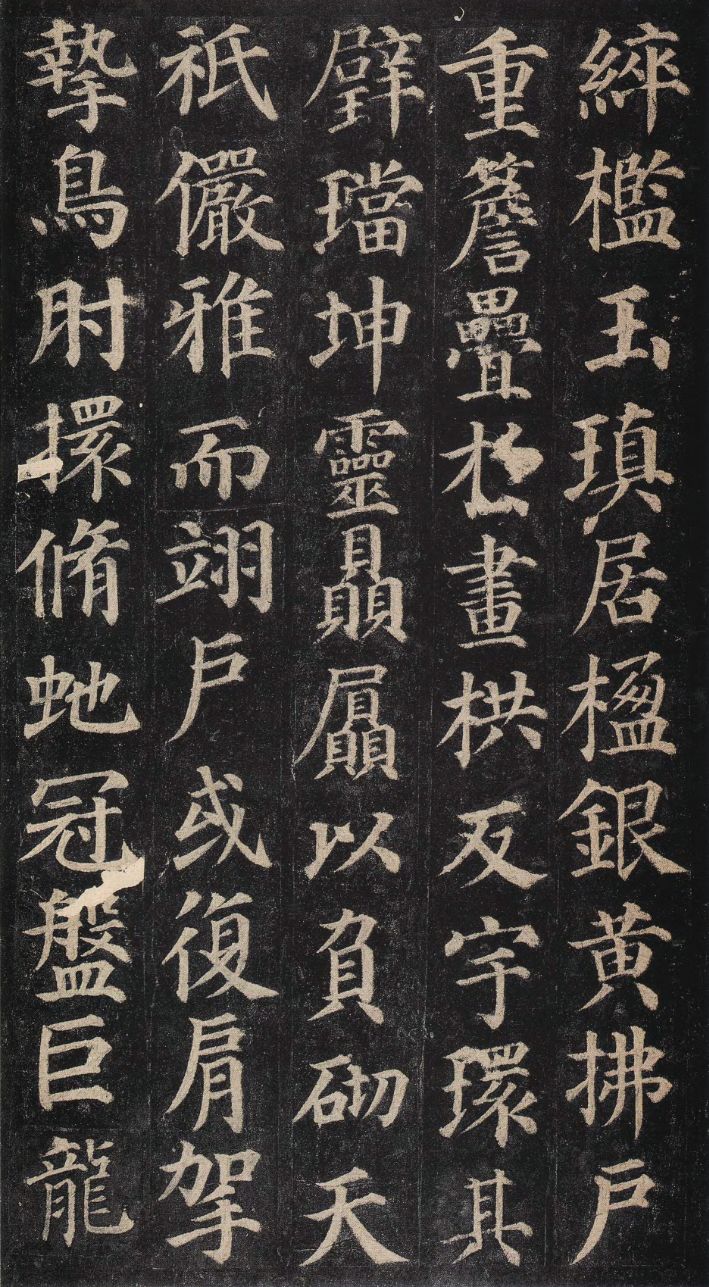 綷檻玉瑱居楹銀黄拂戶
重簷疊扵畫栱反宇環其
璧璫坤靈贔屭以負砌天
祇儼雅而翊戶或復肩挐
摯鳥肘擐脩虵冠盤巨龍